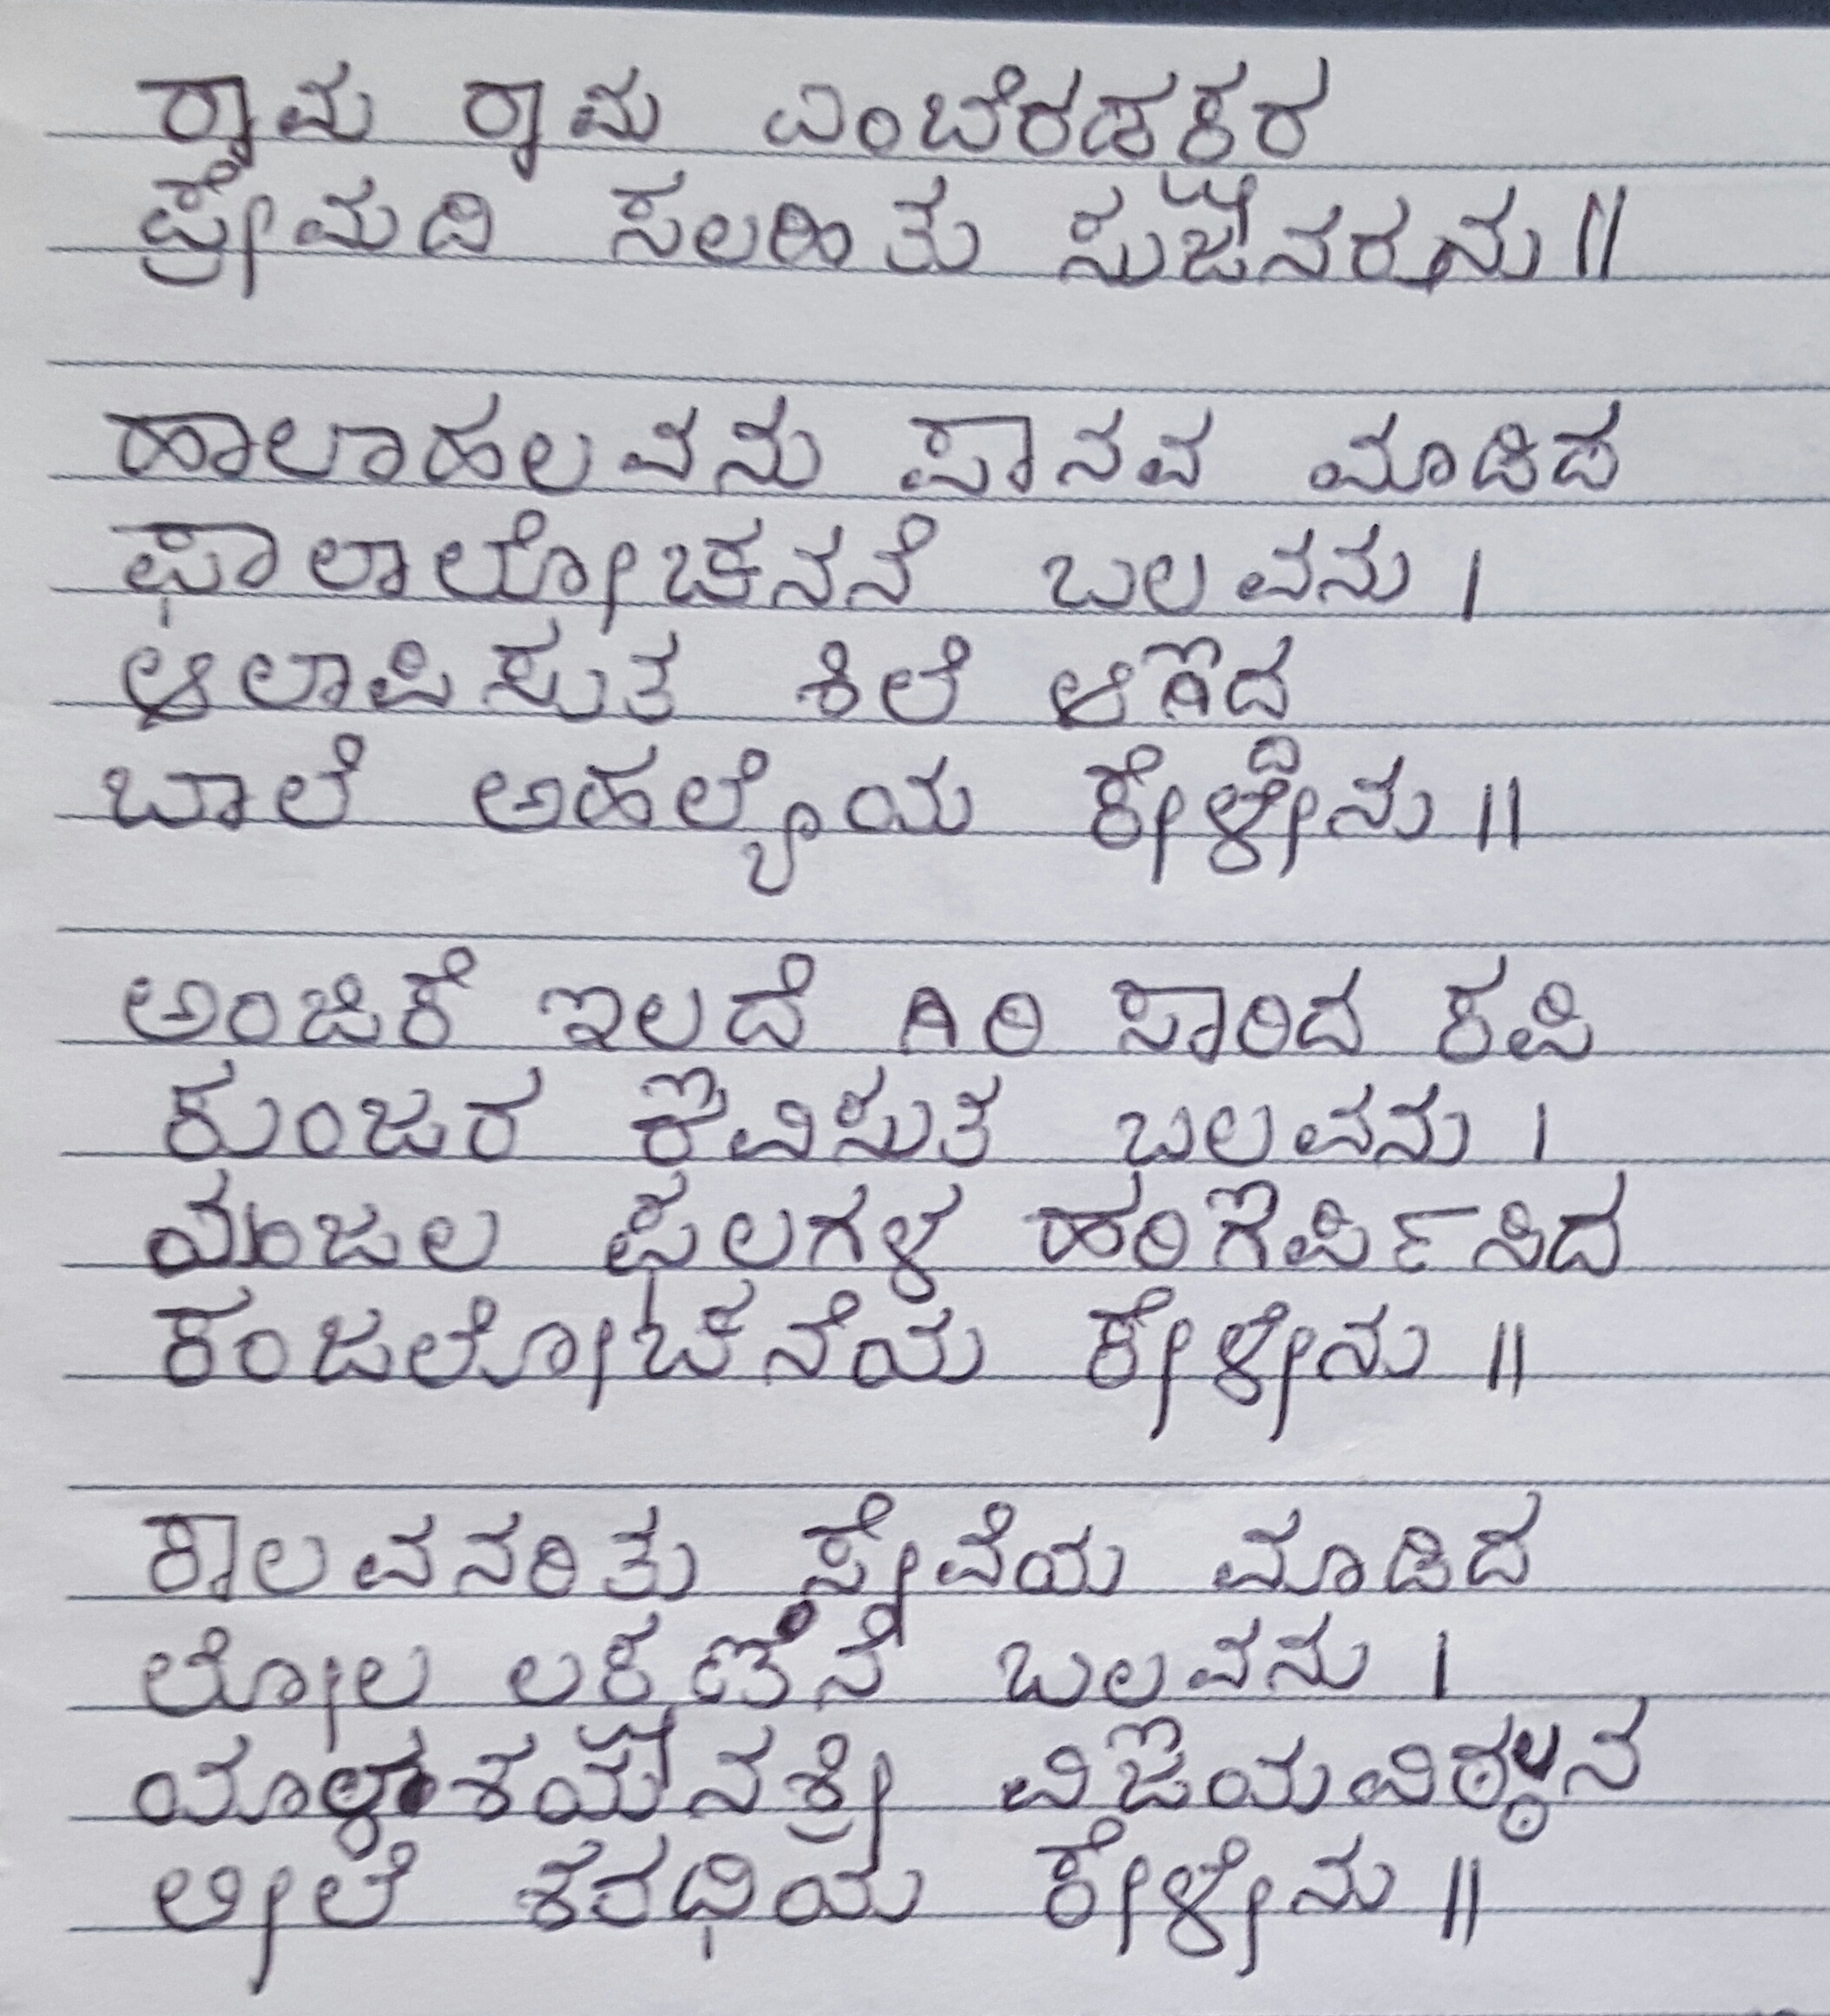 ರಾಮ ರಾಮ ಎಂಬೆರಡಕ್ಷರ
ಪ್ರೇಮದಿ ಸಲಹಿತು ಸುಜನರನು ||
ಹಾಲಾಹಲವನು ಪಾನವ ಮಾಡಿದ
ಫಾಲಾಲೋಚನನೆ ಬಲವನು |
ಆಲಾಪಿಸುತ ಶಿಲೆ ಆಗಿದ್ದ
ಬಾಲೆ ಅಹಲ್ಯೆಯ ಕೇಳೇನು ||
ಅಂಜಿಕೆ ಇಲದೆ ಗಿರಿ ಸಾರಿದ ಕಪಿ
ಕುಂಜರ ಕೈವಿಸುತ ಬಲವನು |
ಮಂಜುಲ ಫಲಗಳ ಹರಿಗೆರ್ಪಿಸಿದ
ಕಂಜಲೋಚನೆಯ ಕೇಳೇನು ||
ಕಾಲವನರಿತು ಸೇವೆಯ ಮಾಡಿದ
ಲೋಲ ಲಕ್ಷ್ಮಣನೆ ಬಲವನು |
ವ್ಯಾಳಾಶಯನಶ್ರೀ ವಿಜಯವಿಠ್ಠಲನ
ಲೀಲೆ ಶರಧಿಯ ಕೇಳೇನು ||